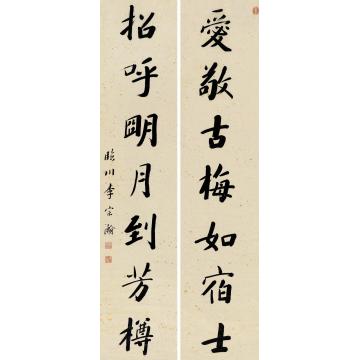 愛敬古梅如宿士
招呼明月到芳樽
臨川李宗瀚